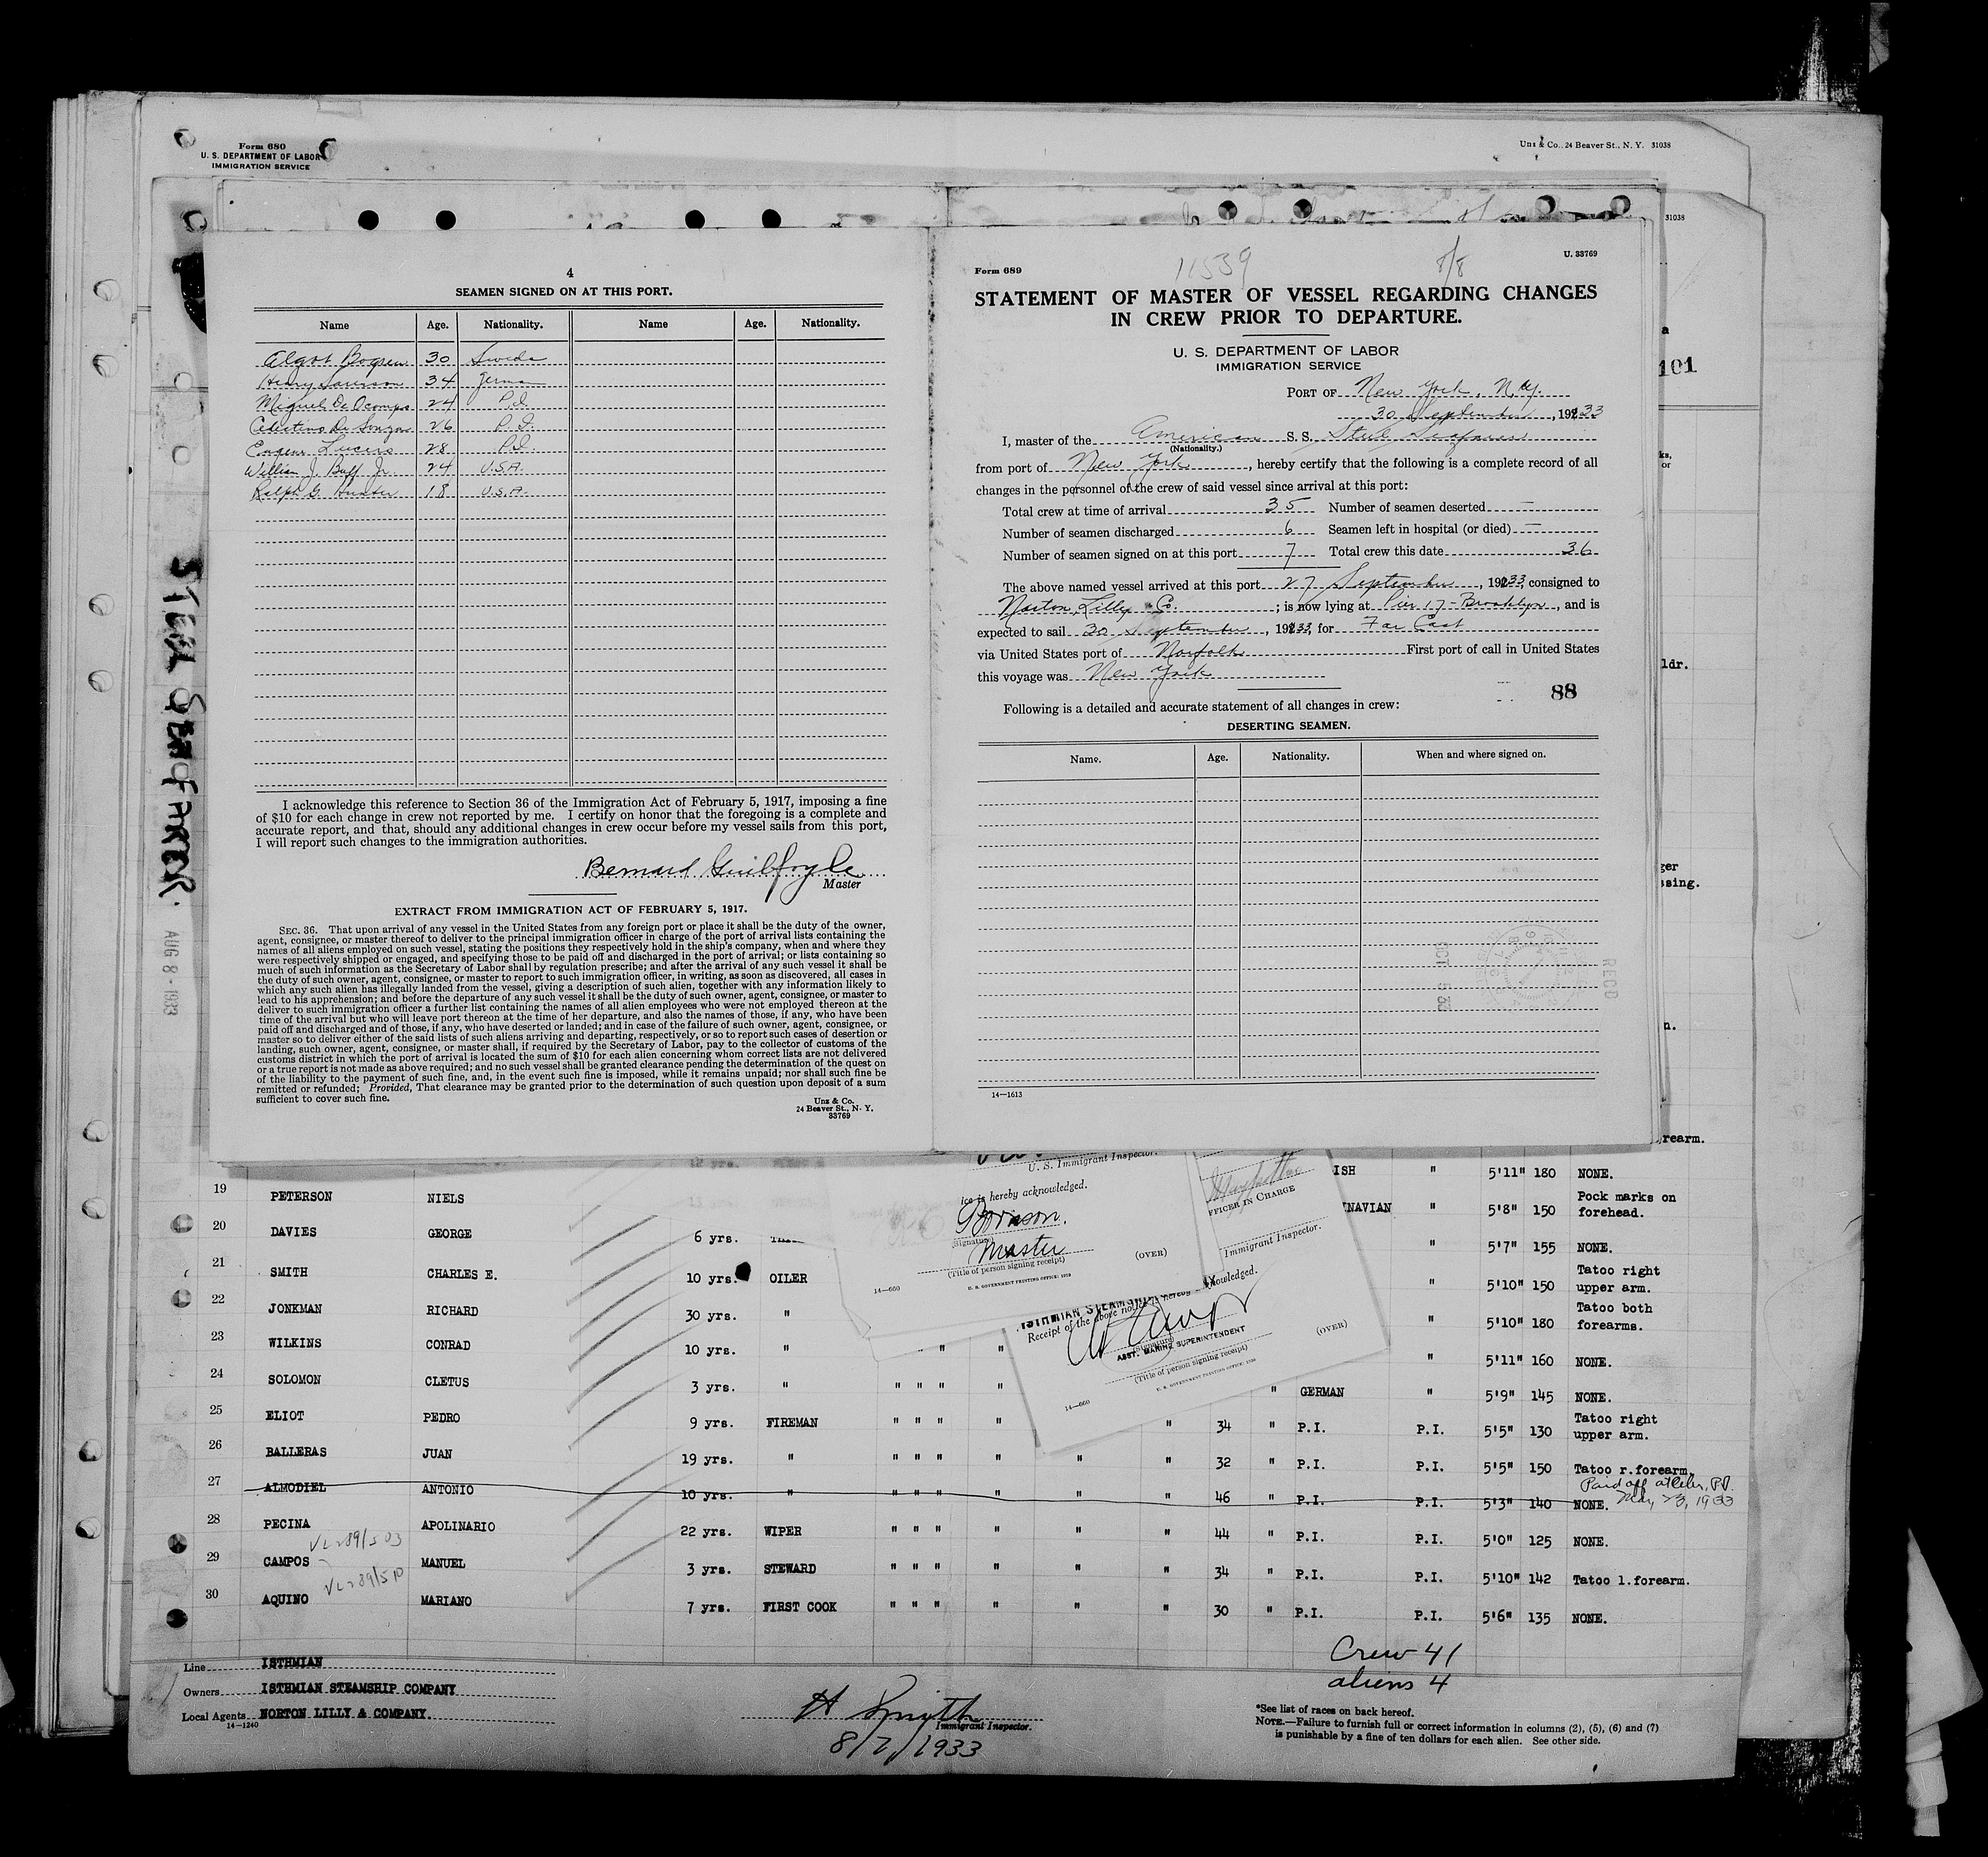 Form 680
U. S. DEPARTMENT OF LABOR
IMMIGRATION SERVICE
Unz & Co., 24 Beaver St., N. Y. 31038
31038
101
STEEL SEAFARER.
AUG 8 - 1933
4
SEAMEN SIGNED ON AT THIS PORT.
Name Age. Nationality. Name Age. Nationality.
Algot 30 Swede
Henry 34
Miguel De Ocampo 24 P.I.
Celestino De 26 P.I.
Eugene Lucero 28 P.I.
William J. Buff Jr. 24 U.S.A.
Ralph G. Hunter 18 U.S.A.
I acknowledge this reference to Section 36 of the Immigration Act of February 5, 1917, imposing a fine
of $10 for each change in crew not reported by me. I certify on honor that the foregoing is a complete and
accurate report, and that, should any additional changes in crew occur before my vessel sails from this port,
I will report such changes to the immigration authorities.
Bernard Guilfoyle
Master
EXTRACT FROM IMMIGRATION ACT OF FEBRUARY 5, 1917.
SEC. 36. That upon arrival of any vessel in the United States from any foreign port or place it shall be the duty of the owner,
agent, consignee, or master thereof to deliver to the principal immigration officer in charge of the port of arrival lists containing the
names of all aliens employed on such vessel, stating the positions they respectively hold in the ship's company, when and where they
were respectively shipped or engaged, and specifying those to be paid off and discharged in the port of arrival; or lists containing so
much of such information as the Secretary of Labor shall by regulation prescribe; and after the arrival of any such vessel it shall be
the duty of such owner, agent, consignee, or master to report to such immigration officer, in writing, as soon as discovered, all cases in
which any such alien has illegally landed from the vessel, giving a description of such alien, together with any information likely to
lead to his apprehension; and before the departure of any such vessel it shall be the duty of such owner, agent, consignee, or master to
deliver to such immigration officer a further list containing the names of all alien employees who were not employed thereon at the
time of the arrival but who will leave port thereon at the time of her departure, and also the names of those, if any, who have been
paid off and discharged and of those, if any, who have deserted or landed; and in case of the failure of such owner, agent, consignee, or
master so to deliver either of the said lists of such aliens arriving and departing, respectively, or so to report such cases of desertion or
landing, such owner, agent, consignee, or master shall, if required by the Secretary of Labor, pay to the collector of customs of the
customs district in which the port of arrival is located the sum of $10 for each alien concerning whom correct lists are not delivered
or a true report is not made as above required; and no such vessel shall be granted clearance pending the determination of the quest on
of the liability to the payment of such fine, and, in the event such fine is imposed, while it remains unpaid; nor shall such fine be
remitted or refunded; Provided, That clearance may be granted prior to the determination of such question upon deposit of a sum
sufficient to cover such fine.
Unz & Co.
24 Beaver St., N. Y.
33769
Form 689 11539 8/8 U. 33769
STATEMENT OF MASTER OF VESSEL REGARDING CHANGES
IN CREW PRIOR TO DEPARTURE.
U. S. DEPARTMENT OF LABOR
IMMIGRATION SERVICE
PORT OF New York, N.Y.
30 September, 1933
I, master of the American S. S. Steel Seafarer
(Nationality.)
from port of New York, hereby certify that the following is a complete record of all
changes in the personnel of the crew of said vessel since arrival at this port:
Total crew at time of arrival 35 Number of seamen deserted —
Number of seamen discharged 6 Seamen left in hospital (or died) —
Number of seamen signed on at this port 7 Total crew this date 36
The above named vessel arrived at this port 27 September, 1933, consigned to
Norton, Lilly & Co. ; is now lying at Pier 17 - Brooklyn, and is
expected to sail 30 September, 1933, for Far East
via United States port of Norfolk First port of call in United States
this voyage was New York
88
Following is a detailed and accurate statement of all changes in crew:
DESERTING SEAMEN.
Name. Age. Nationality. When and where signed on.
RECD
OCT 5 33
14—1613
ldr.
ger
ssing.
rearm.
U. S. Immigrant Inspector.
ice is hereby acknowledged.
(Signature)
Master
(Title of person signing receipt)
(OVER)
14—660 U. S. GOVERNMENT PRINTING OFFICE: 1929
FFICER IN CHARGE
Immigrant Inspector.
knowledged.
ISTHMIAN STEAMSHIP
Receipt of the above notice hereby
(Signature)
ASST. MARINE SUPERINTENDENT
(Title of person signing receipt)
(OVER)
14—660
ISH " 5'11" 180 NONE.
19 PETERSON NIELS NAVIAN " 5'8" 150 Pock marks on
forehead.
20 DAVIES GEORGE 6 yrs. " 5'7" 155 NONE.
21 SMITH CHARLES E. 10 yrs. OILER " 5'10" 150 Tatoo right
upper arm.
22 JONKMAN RICHARD 30 yrs. " " 5'10" 180 Tatoo both
forearms.
23 WILKINS CONRAD 10 yrs. " " " " 5'11" 160 NONE.
24 SOLOMON CLETUS 3 yrs. " " " " " " GERMAN " 5'9" 145 NONE.
25 ELIOT PEDRO 9 yrs. FIREMAN " " " " " 34 " P.I. P.I. 5'5" 130 Tatoo right
upper arm.
26 BALLERAS JUAN 19 yrs. " " " " " " " 32 " P.I. P.I. 5'5" 150 Tatoo r.forearm.
27 ALMODIEL ANTONIO 10 yrs. " " " " " " " 46 " P.I. P.I. 5'3" 140 NONE.
Paid off at Cebu, P.I.
May 23, 1933
28 PECINA APOLINARIO 22 yrs. WIPER " " " " " " 44 " P.I. P.I. 5'0" 125 NONE.
29 CAMPOS MANUEL 3 yrs. STEWARD " " " " " " 34 " P.I. P.I. 5'10" 142 Tatoo l.forearm.
30 AQUINO MARIANO 7 yrs. FIRST COOK " " " " " " 30 " P.I. P.I. 5'6" 135 NONE.
Crew 41
aliens 4
Line ISTHMIAN
Owners ISTHMIAN STEAMSHIP COMPANY
Local Agents NORTON LILLY & COMPANY.
14—1240
H Smyth
Immigrant Inspector.
8/7/1933
*See list of races on back hereof.
NOTE.—Failure to furnish full or correct information in columns (2), (5), (6) and (7)
is punishable by a fine of ten dollars for each alien. See other side.